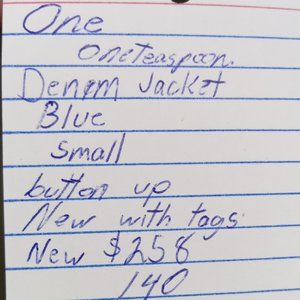 One
Oneteaspoon.
Denim Jacket
Blue
Small
button up
New with tags
New $258
140